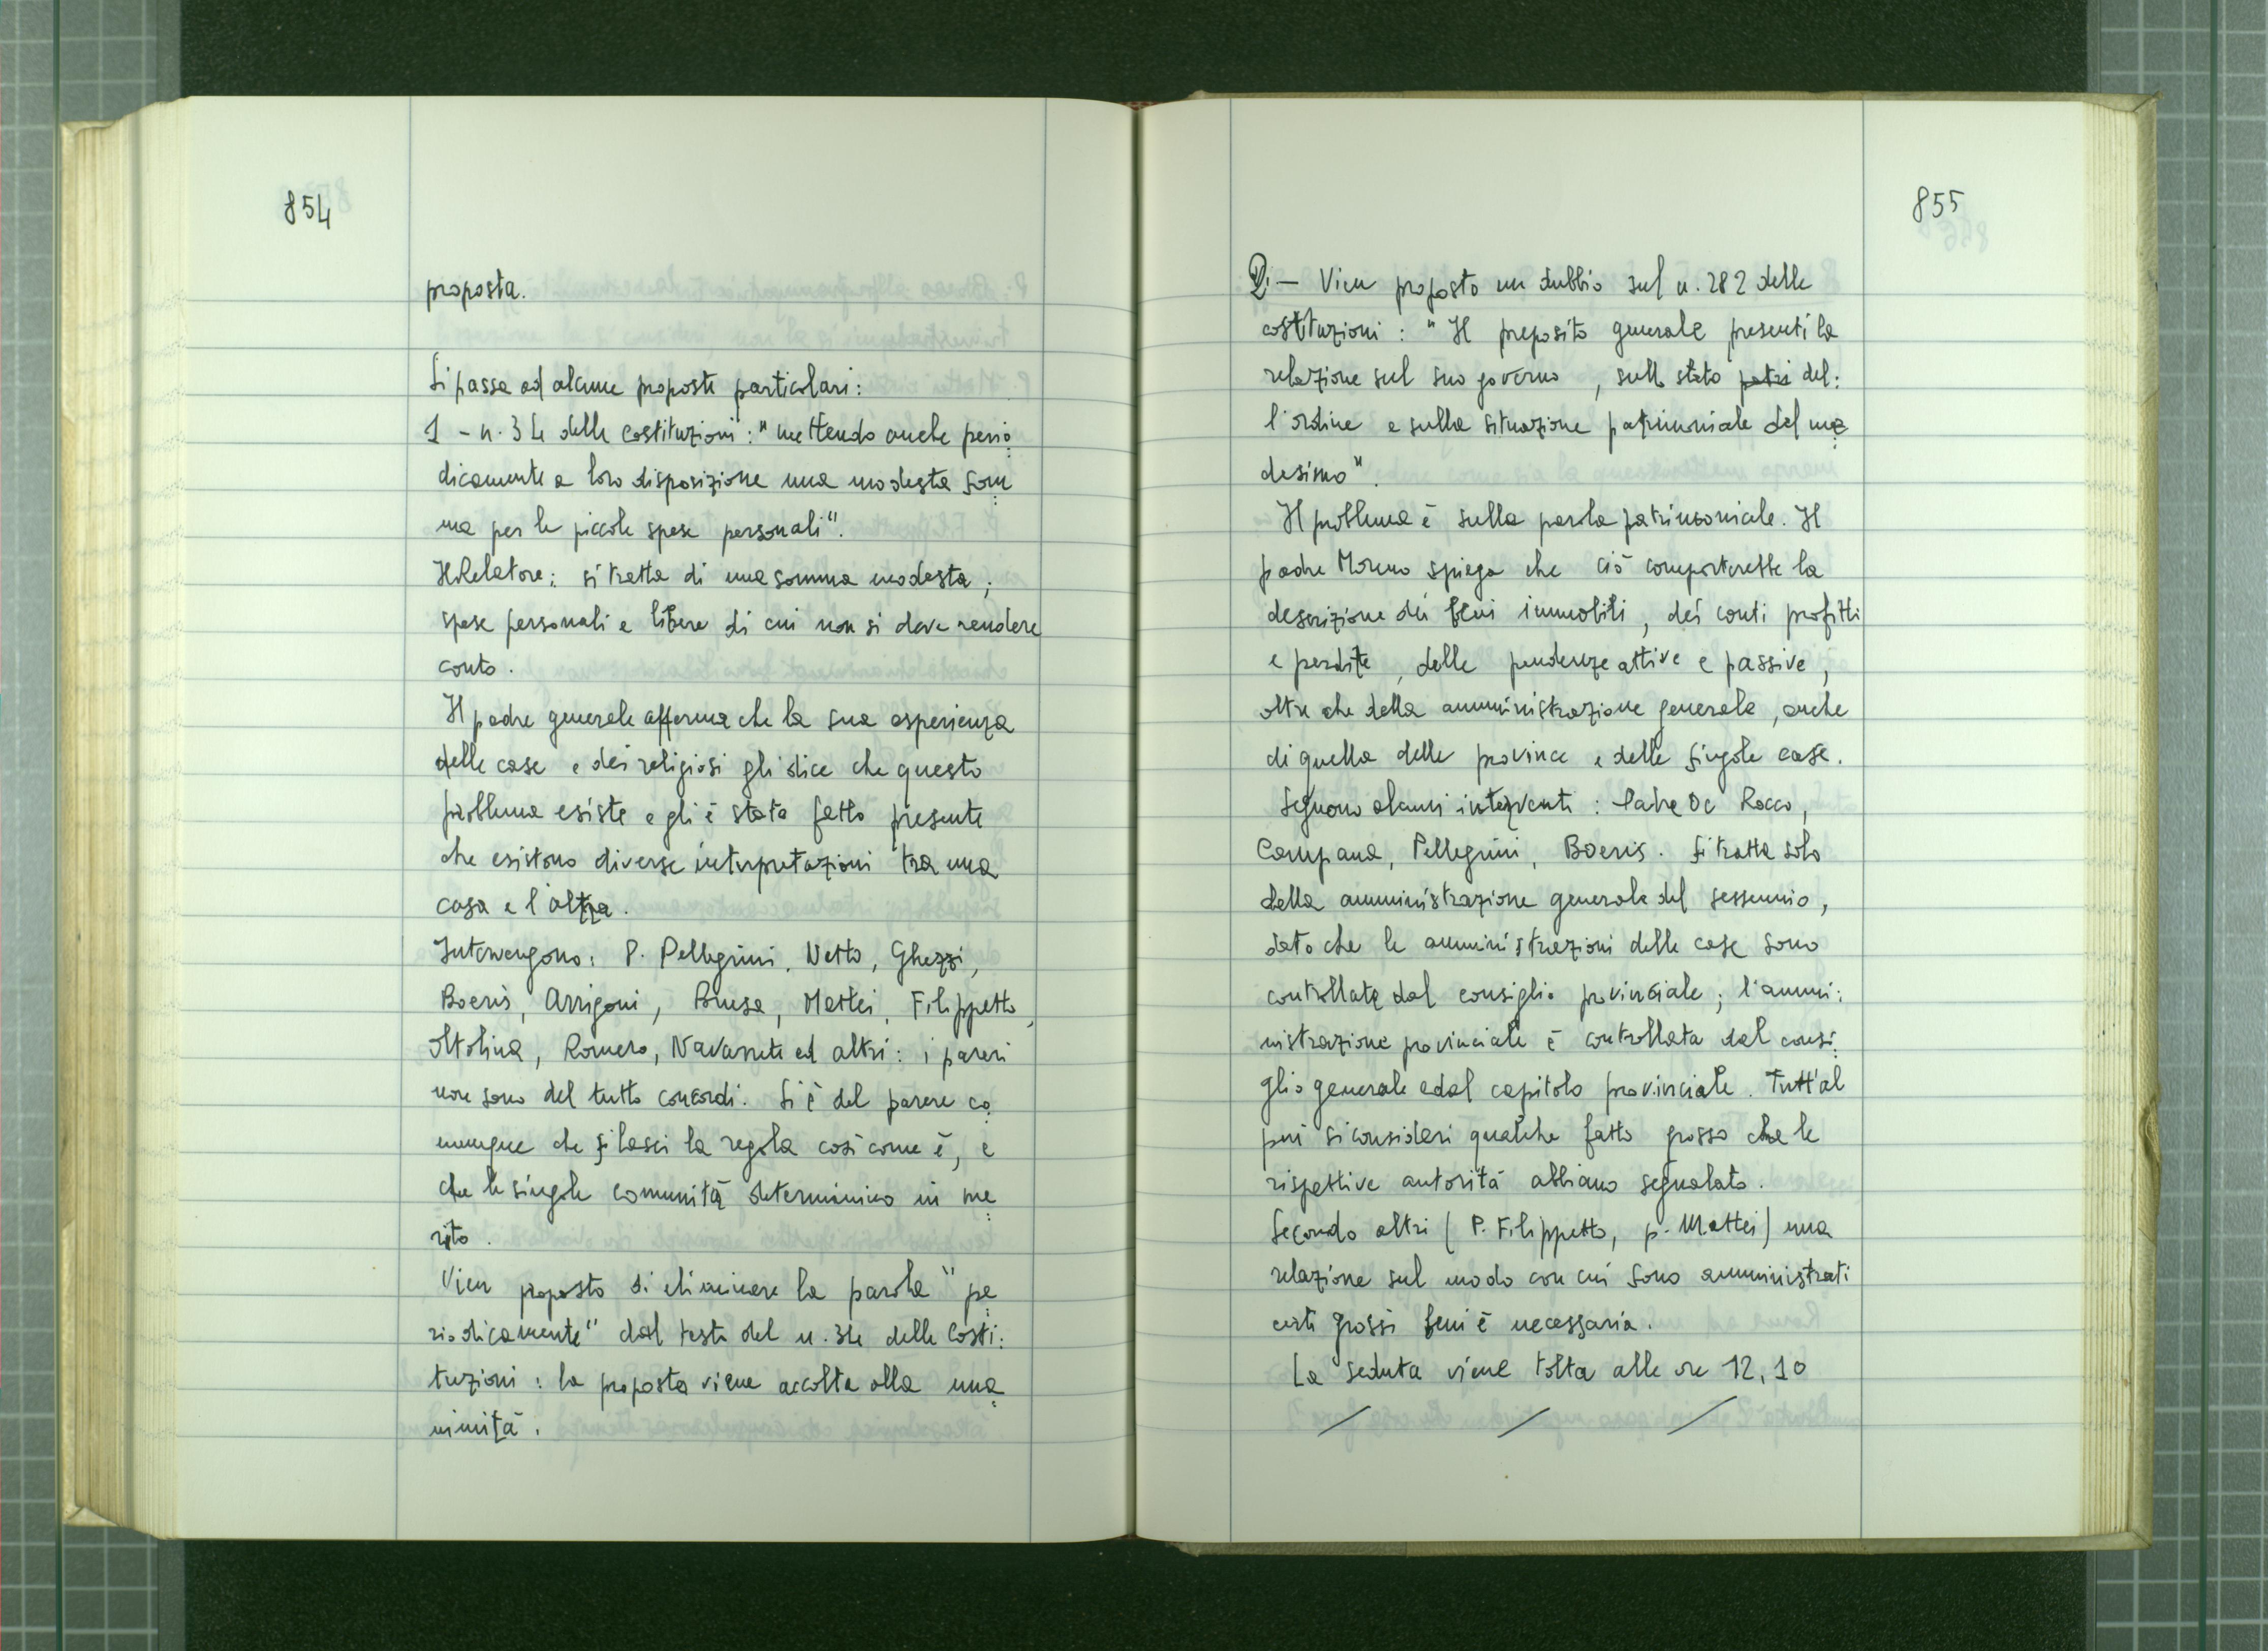 854
proposta.
Si passa ad alcune proposte particolari:
1 - n. 34 delle costituzioni: "mettendo anche perio
dicamente a loro disposizione una modesta som
ma per le piccole spese personali".
Il Relatore: si tratta di una somma modesta;
spese personali e libere di cui non si deve rendere
conto.
Il padre generale afferma che la sua esperienza
delle case e dei religiosi gli dice che questo
problema esiste e gli è stato fatto presente
che esistono diverse interpretazioni tra una
casa e l'altra.
Intervengono: P. Pellegrini, Netto, Ghezzi,
Boeris, Arrigoni, Brusa, Mattei, Filippetto,
Oltolina, Romero, Navarrete ed altri: i pareri
non sono del tutto concordi. Si è del parere co
munque che si lasci la regola così come è, e
che le singole comunità determinino in me
rito.
Vien proposto di eliminare la parola "pe
riodicamente" dal testo del n. 34 delle Costi:
tuzioni: la proposta viene accolta alla una
nimità.
855
2. - Vien proposto un dubbio sul n. 282 delle
costituzioni: "Il preposito generale presenti la
relazione sul suo governo, sullo stato patri del:
l'ordine e sulla situazione patrimoniale del me
desimo".
Il problema è sulla parola patrimoniale. Il
padre Moreno spiega che ciò comporterebbe la
descrizione dei beni immobili, dei conti profitti
e perdite, delle pendenze attive e passive,
oltre che della amministrazione generale, anche
di quella delle province e delle singole case.
Seguono alcuni interventi: Padre De Rocco,
Campana, Pellegrini, Boeris. Si tratta solo
della amministrazione generale del sessennio,
dato che le amministrazioni delle case sono
controllate dal consiglio provinciale; l'ammi:
nistrazione provinciale è controllata dal consi
glio generale e dal capitolo provinciale. Tutt'al
più si consideri qualche fatto grosso che le
rispettive autorità abbiano segnalato.
Secondo altri (P. Filippetto, p. Mattei) una
relazione sul modo con cui sono amministrati
certi grossi beni è necessaria.
La seduta viene tolta alle ore 12,10